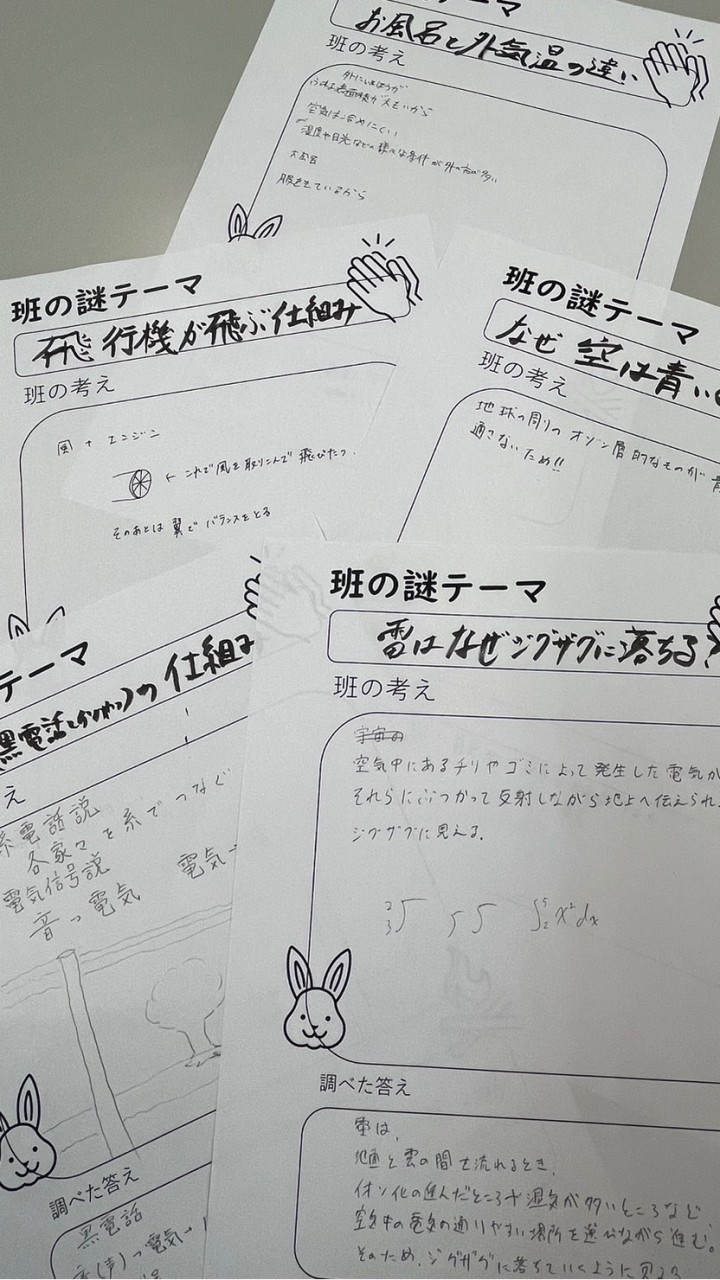 テーマ
お風呂と外気温の違い
班の考え
表面積が大きいから
空気は冷めにくい
湿度や日光などの様々な条件が外の方が多い
お風呂
服をきているから
班の謎テーマ
飛行機が飛ぶ仕組み
班の考え
風 + エンジン
← これで風を取りこんで飛びたつ.
そのあとは翼でバランスをとる
班の謎テーマ
なぜ 空は青い
班の考え
地球の周りのオゾン層的なものが 青
通さないため!!
テーマ
黒電話 の仕組み
え
糸電話説
各家々を糸でつなぐ
電気信号説
音→電気 電気→
調べた答え
黒電話
音(声)→電気→
班の謎テーマ
雷はなぜジグザグに落ちる?
班の考え
宇宙の
空気中にあるチリやゴミによって発生した電気が
それらにぶつかって反射しながら地上へ伝えられ
ジグザグに見える.
∫ ∫ ∫ ∫₂⁵ x² dx
調べた答え
雷は、
地面と雲の間を流れるとき、
イオン化の進んだところや湿気が多いところなど
空気中の電気の通りやすい場所を選びながら進む。
そのため、ジグザグに落ちていくように見える